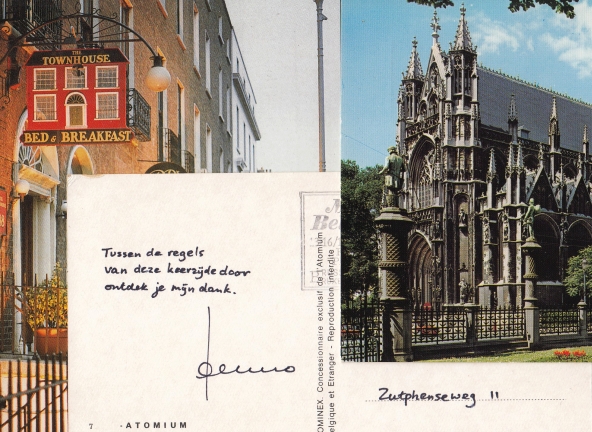 THE
TOWNHOUSE
BED & BREAKFAST
Tussen de regels
van deze keerzijde door
ontdek je mijn dank.
7 · ATOMIUM
OMINEX. Concessionnaire exclusif de l'Atomium
elgique et Etranger - Reproduction interdite
Zutphenseweg 11